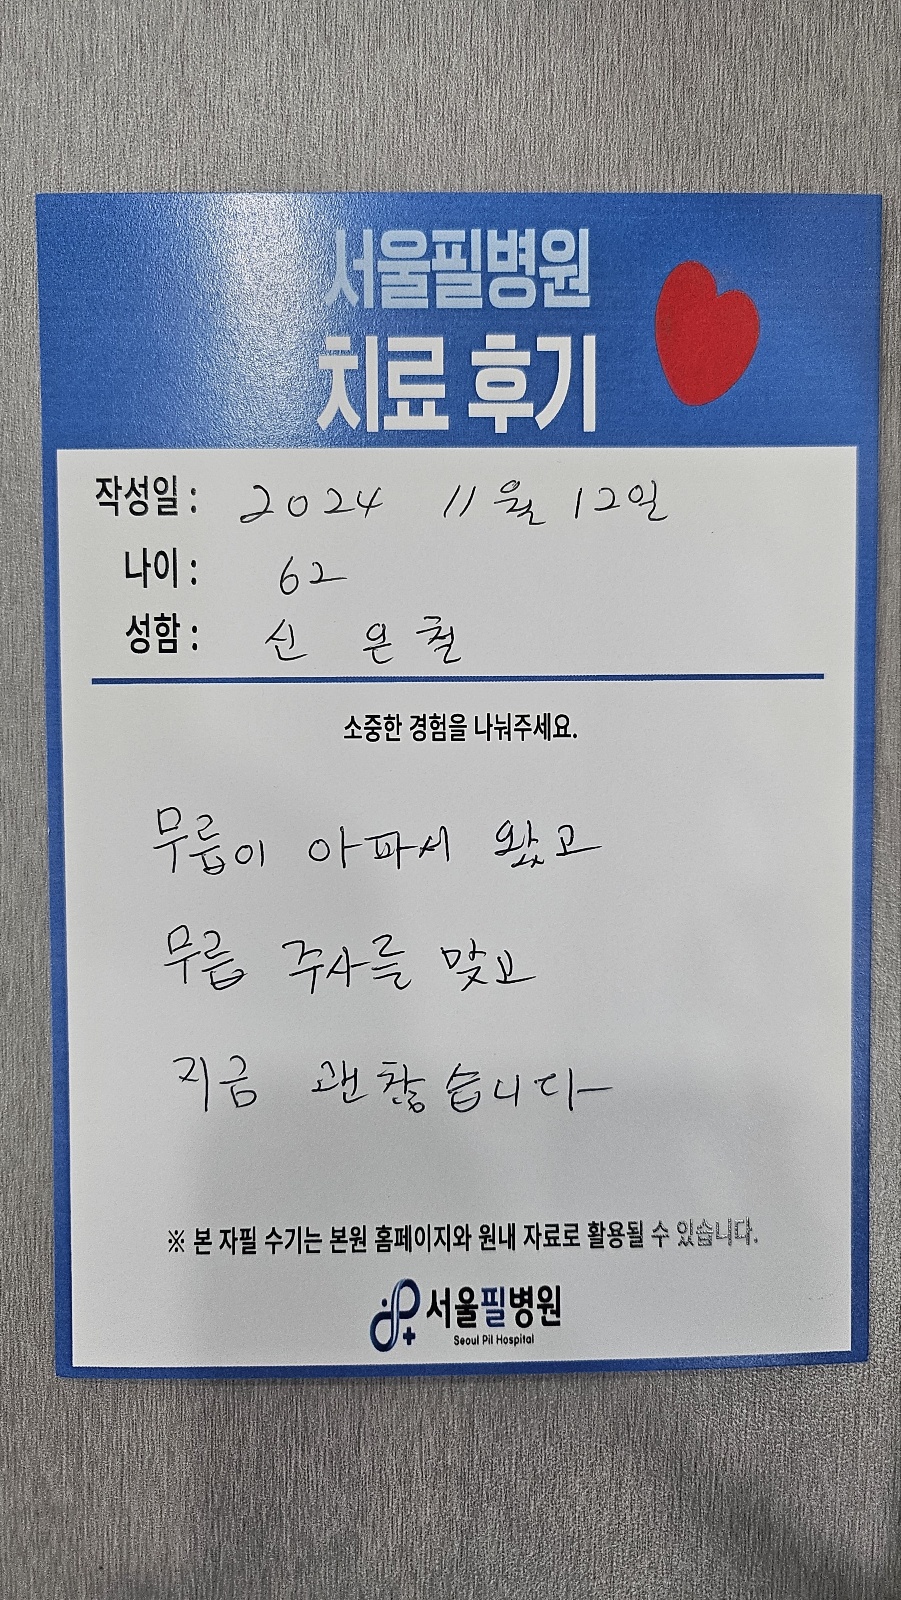 서울필병원
치료 후기
작성일 : 2024 11월 12일
나이 : 62
성함 : 신 은 철
소중한 경험을 나눠주세요.
무릎이 아파서 왔고
무릎 주사를 맞고
지금 괜찮습니다
※ 본 자필 수기는 본원 홈페이지와 원내 자료로 활용될 수 있습니다.
서울필병원
Seoul Pil Hospital